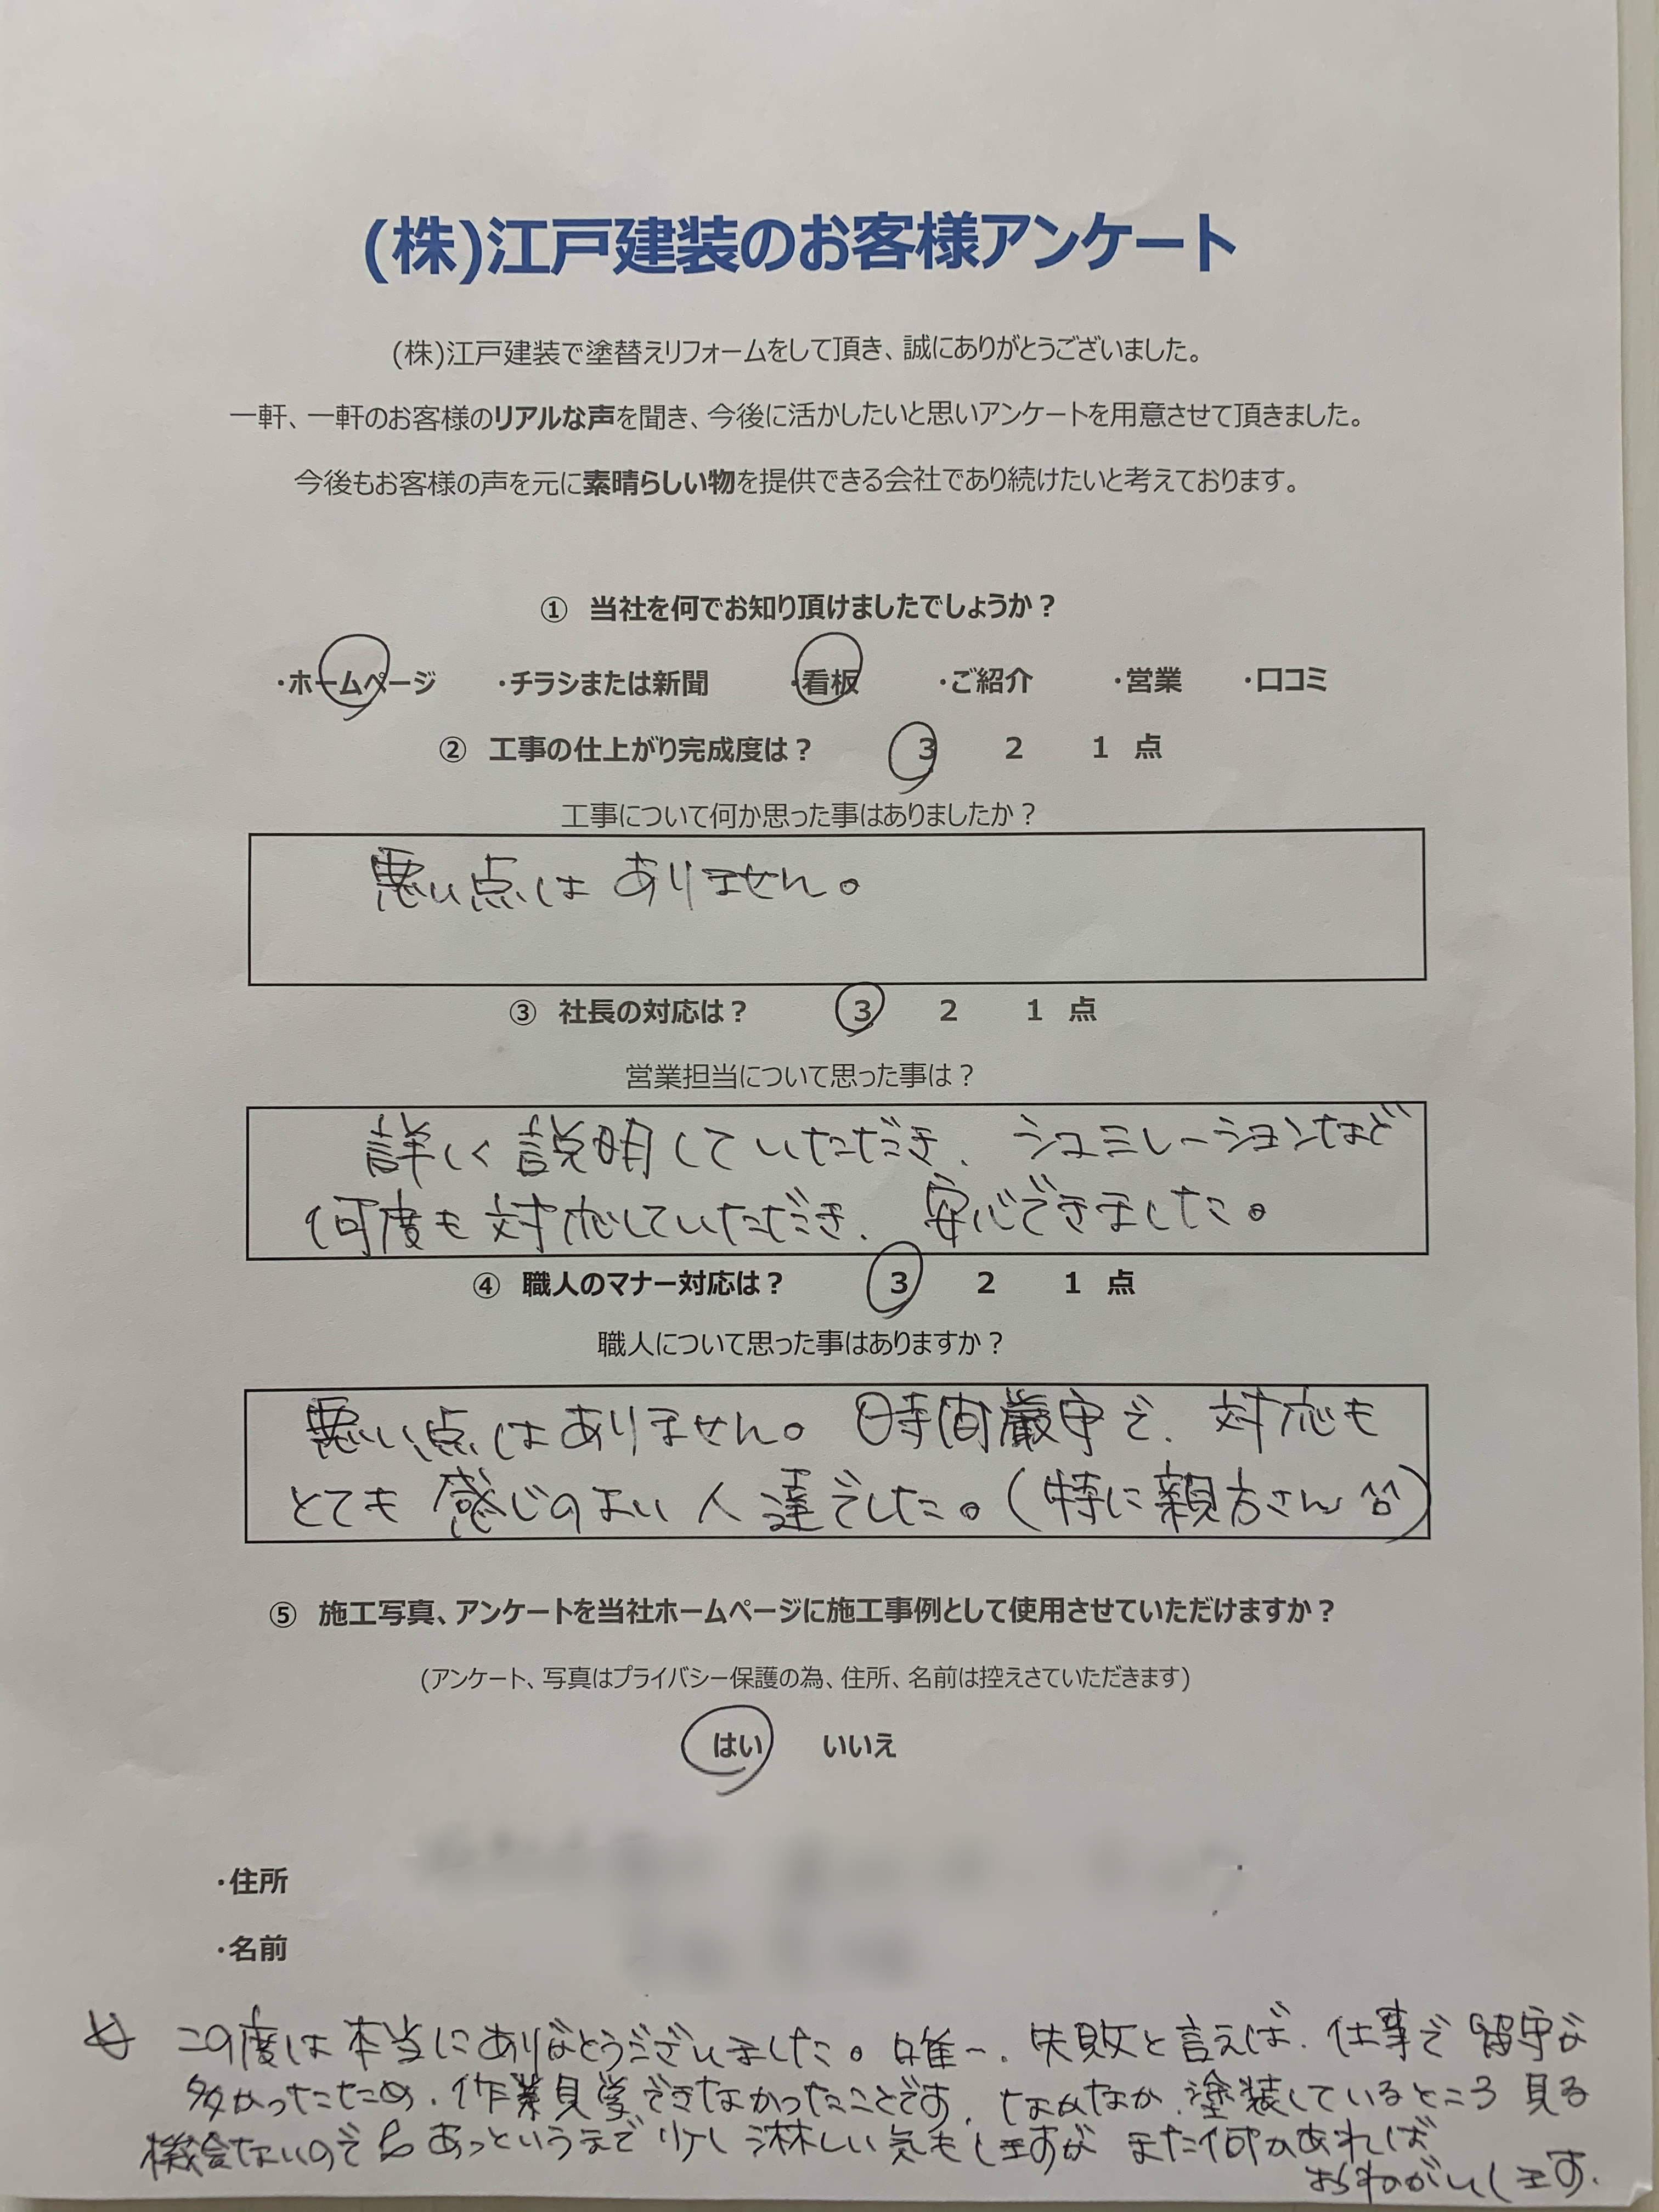 (株)江戸建装のお客様アンケート
(株)江戸建装で塗替えリフォームをして頂き、誠にありがとうございました。
一軒、一軒のお客様のリアルな声を聞き、今後に活かしたいと思いアンケートを用意させて頂きました。
今後もお客様の声を元に素晴らしい物を提供できる会社であり続けたいと考えております。
① 当社を何でお知り頂けましたでしょうか？
・ホームページ ・チラシまたは新聞 ・看板 ・ご紹介 ・営業 ・口コミ
② 工事の仕上がり完成度は？ 3 2 1 点
工事について何か思った事はありましたか？
悪い点は ありません。
③ 社長の対応は？ 3 2 1 点
営業担当について思った事は？
詳しく説明していただき、シュミレーションなど
何度も対応していただき、安心できました。
④ 職人のマナー対応は？ 3 2 1 点
職人について思った事はありますか？
悪い点はありません。時間厳守で、対応も
とても感じのよい人達でした。(特に親方さん ^^)
⑤ 施工写真、アンケートを当社ホームページに施工事例として使用させていただけますか？
(アンケート、写真はプライバシー保護の為、住所、名前は控えさていただきます)
はい いいえ
・住所
・名前
この度は本当にありがとうございました。唯一、失敗と言えば、仕事で留守が
多かったため、作業見学できなかったことです。なかなか、塗装しているところ見る
機会ないので あっというまで少し淋しい気もしますが また何かあれば
おねがいします。